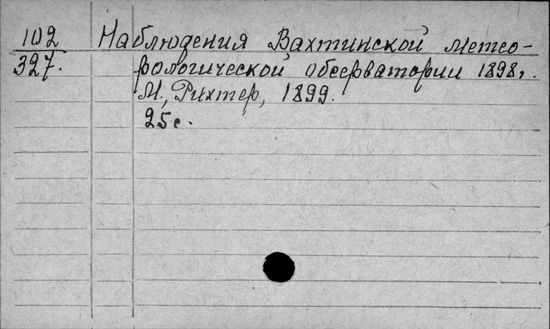 102 Наблюдения Вахтинской метео-
327. рологической обсерватории 1898г.
М., Рихтер, 1899.
25с.